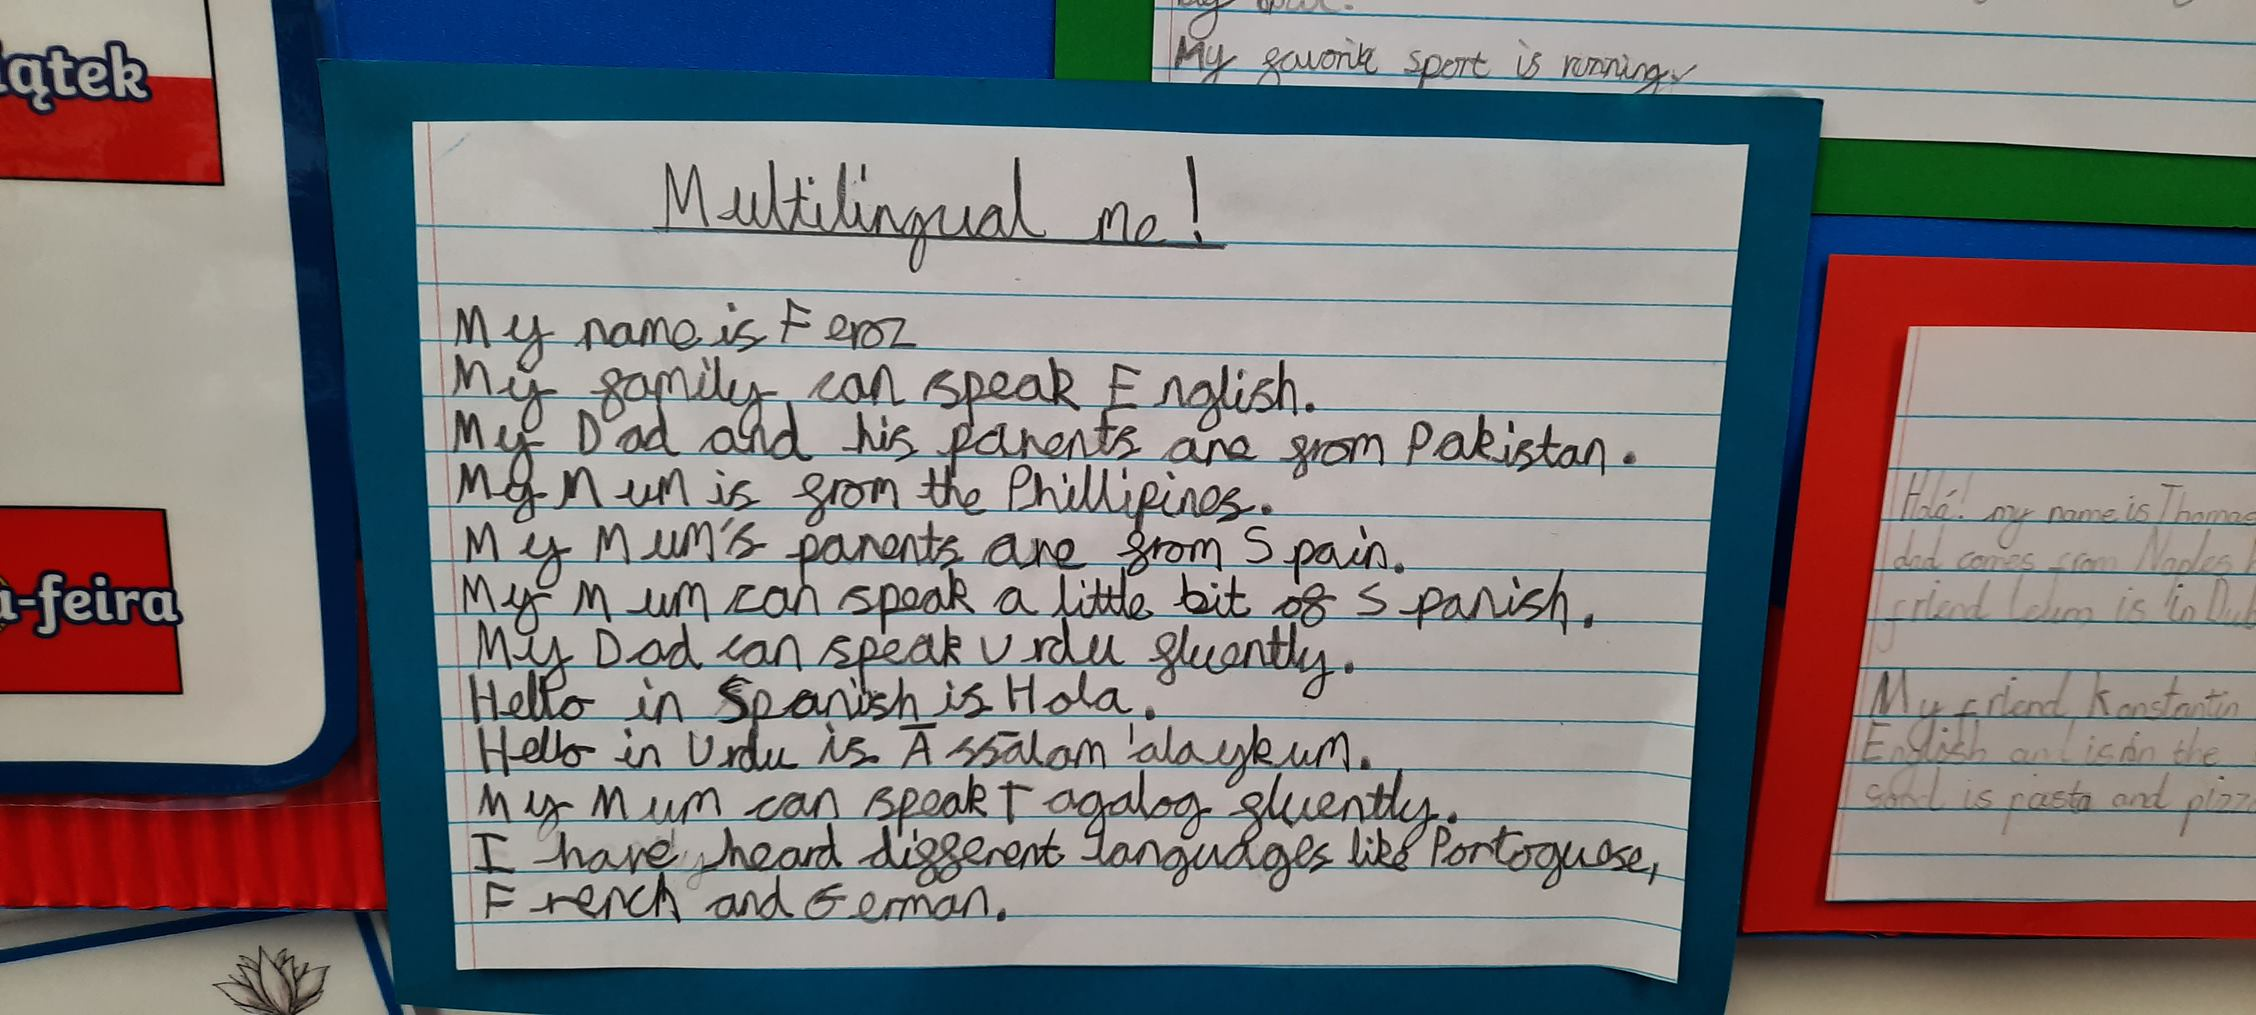 iątek
My favorite sport is running
Multilingual me!
My name is Feroz
My family can speak English.
My Dad and his parents are from Pakistan.
My Mum is from the Phillipines.
My Mum's parents are from Spain.
My Mum can speak a little bit of Spanish.
My Dad can speak Urdu fluently.
Hello in Spanish is Hola.
Hello in Urdu is Āssālam 'alaykum.
My Mum can speak Tagalog fluently.
I have heard different languages like Portoguese,
French and German.
a-feira
my name is Thomas
dad comes from Naples
friend is in Dub
My friend Konstantin
English and is in the
is pasta and pizza